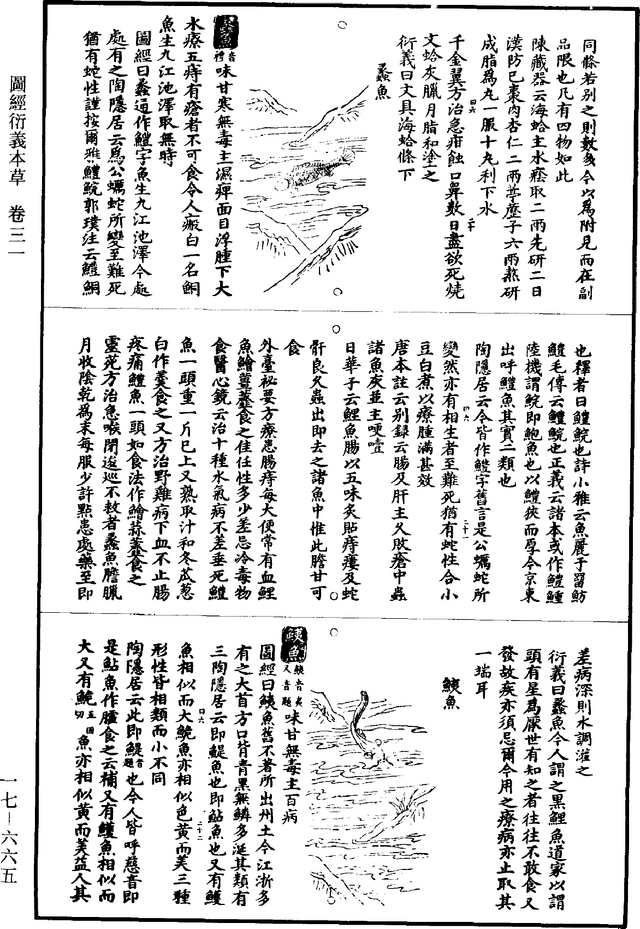 同條若別之則數多今以爲附見而在副
品限也凡有四物如此
陳藏器云海蛤主水癊取二兩先研二日
漢防巳棗肉杏仁二兩葶藶子六兩熬研
成脂爲丸一服十丸利下水
千金翼方治急疳蝕口鼻數日盡欲死燒
文蛤灰臘月脂和塗之
衍義曰文具海蛤條下
蠡魚
蠡魚音禮味甘寒無毒主濕痺面目浮腫下大
水療五痔有瘡者不可食令人瘢白一名鮦
魚生九江池澤取無時
圖經曰蠡通作鱧字魚生九江池澤今處
處有之陶隱居云爲公蠣蛇所變至難死
猶有蛇性謹按爾雅鱧鯇郭璞注云鱧鮦
也釋者曰鱧鯇也詩小雅云魚麗于罶魴
鱧毛傳云鱧鯇也正義云諸本或作鱧鯶
陸機謂鯇即鮑魚也以鱧狹而厚今京東
出呼鱧魚其實二類也
陶隱居云今皆作鱧字舊言是公蠣蛇所
變然亦有相生者至難死猶有蛇性合小
豆白煮以療腫滿甚效
唐本註云別録云腸及肝主久敗瘡中蟲
諸魚灰並主哽噎
日華子云鯉魚腸以五味炙貼痔瘻及蛇
骭良久蟲出即去之諸魚中惟此膽甘可
食
外臺秘要方療患腸痔每大便常有血鯉
魚鱠薑虀食之佳任性多少差忌冷毒物
食醫心鏡云治十種水氣病不差垂死鱧
魚一頭重一斤已上又熟取汁和冬瓜葱
白作羹食之又方治野雞病下血不止腸
疼痛鱧魚一頭如食法作鱠蒜虀食之
靈苑方治急喉閉逡巡不救者蠡魚膽臘
月收陰乾爲末每服少許點患處藥至即
差病深則水調灌之
衍義曰蠡魚今人謂之黑鯉魚道家以謂
頭有星爲厭世有知之者往往不敢食又
發故疾亦須忌爾今用之療病亦止取其
一端耳
鮧魚
鮧魚鮧音夷又音題味甘無毒主百病
圖經曰鮧魚舊不著所出州土今江浙多
有之大首方口背青黑無鱗多涎其類有
三陶隱居云即鯷魚也即鮎魚也又有鱯
魚相似而大鮠魚亦相似色黃而美三種
形性皆相類而小不同
陶隱居云此即鯷音題也今人皆呼慈音即
是鮎魚作臛食之云補又有鱯魚相似而
大又有鮠五回切魚亦相似黃而美益人其
圖經衍義本草　卷三一
一七－六六五